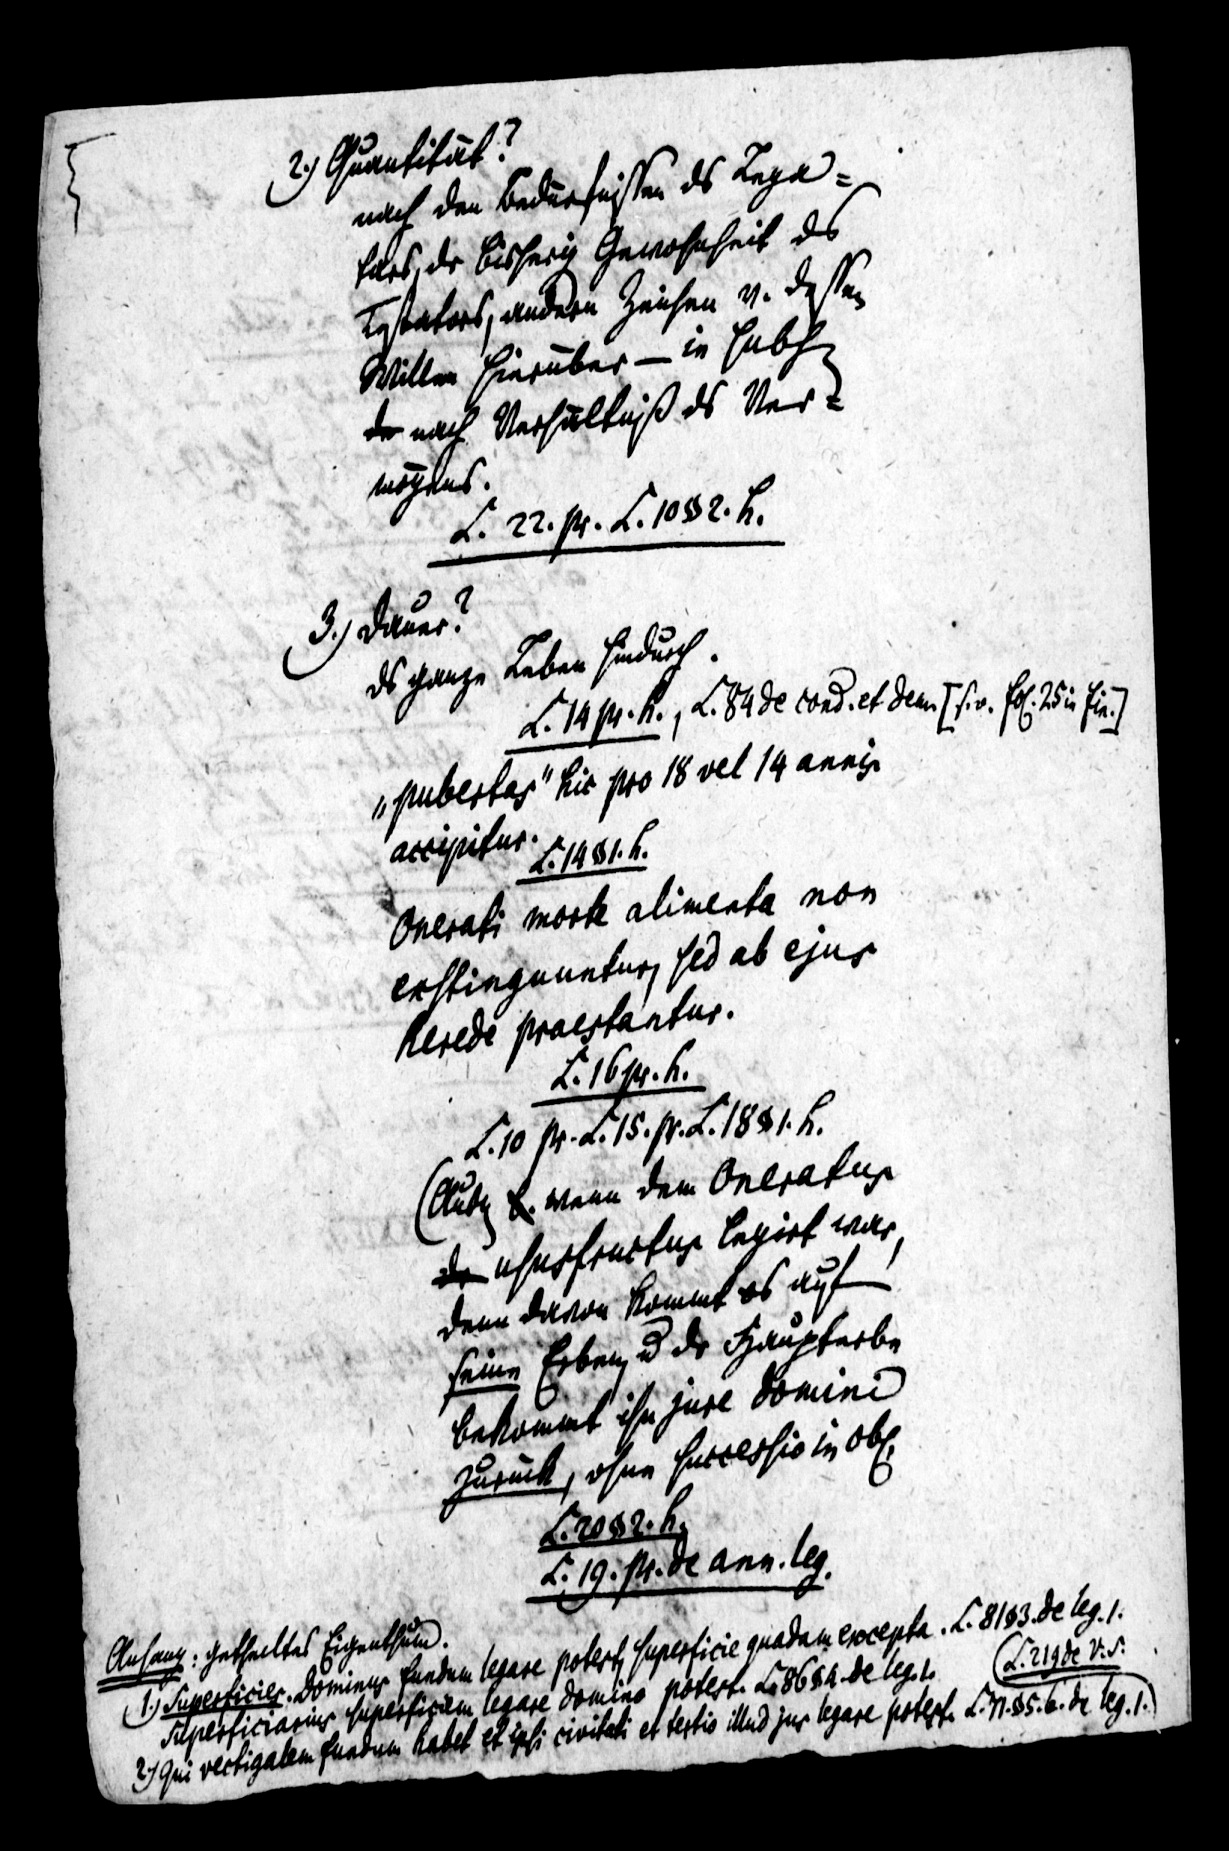 2.) Quantität?
nach den Bedürfnissen ds Lega=
tars, dr bisherig Gewohnheit ds
Testators, andern Zeichen v. dessen
Willen hierüber — in subs
dr nach Verhältniß ds Ver=
mögens.
L. 22. pr. L. 10 § 2. h.
3.) Dauer?
ds ganze Leben hindurch.
L. 14 pr. h., L. 84 de cond. et dem. [s. v. fol. 25 in fin.]
„pubertas" hic pro 18 vel 14 annis
accipitur. L. 14 § 1. h.
Onerati morte alimenta non
exstinguuntur, sed ab ejus
herede praestantur.
L. 16 pr. h.
L. 10 pr. L. 15. pr. L. 18 § 1. h.
(Ausn wenn dem Oneratus
dr ususfructus legirt war,
denn davon kommt es auf
seine Erben, u dr Haupterbe
bekommt ihn jure domini
zurück, ohne successio in obl.
L. 20 § 2. h.
L. 19. pr. de ann. leg.
Anhang: getheiltes Eigenthum.
1.) Superficies. Dominus fundum legare potest, superficie quadam excepta. L. 81 § 3. de leg. 1.
Superficiarius superficiem legare domino potest. L. 86 § 4. de leg. 1. (L. 219 de V. S.
2.) Qui vectigalem fundum habet et ipsi civitati et tertio illud jus legare potest. L. 71. § 5. 6. de leg. 1.)